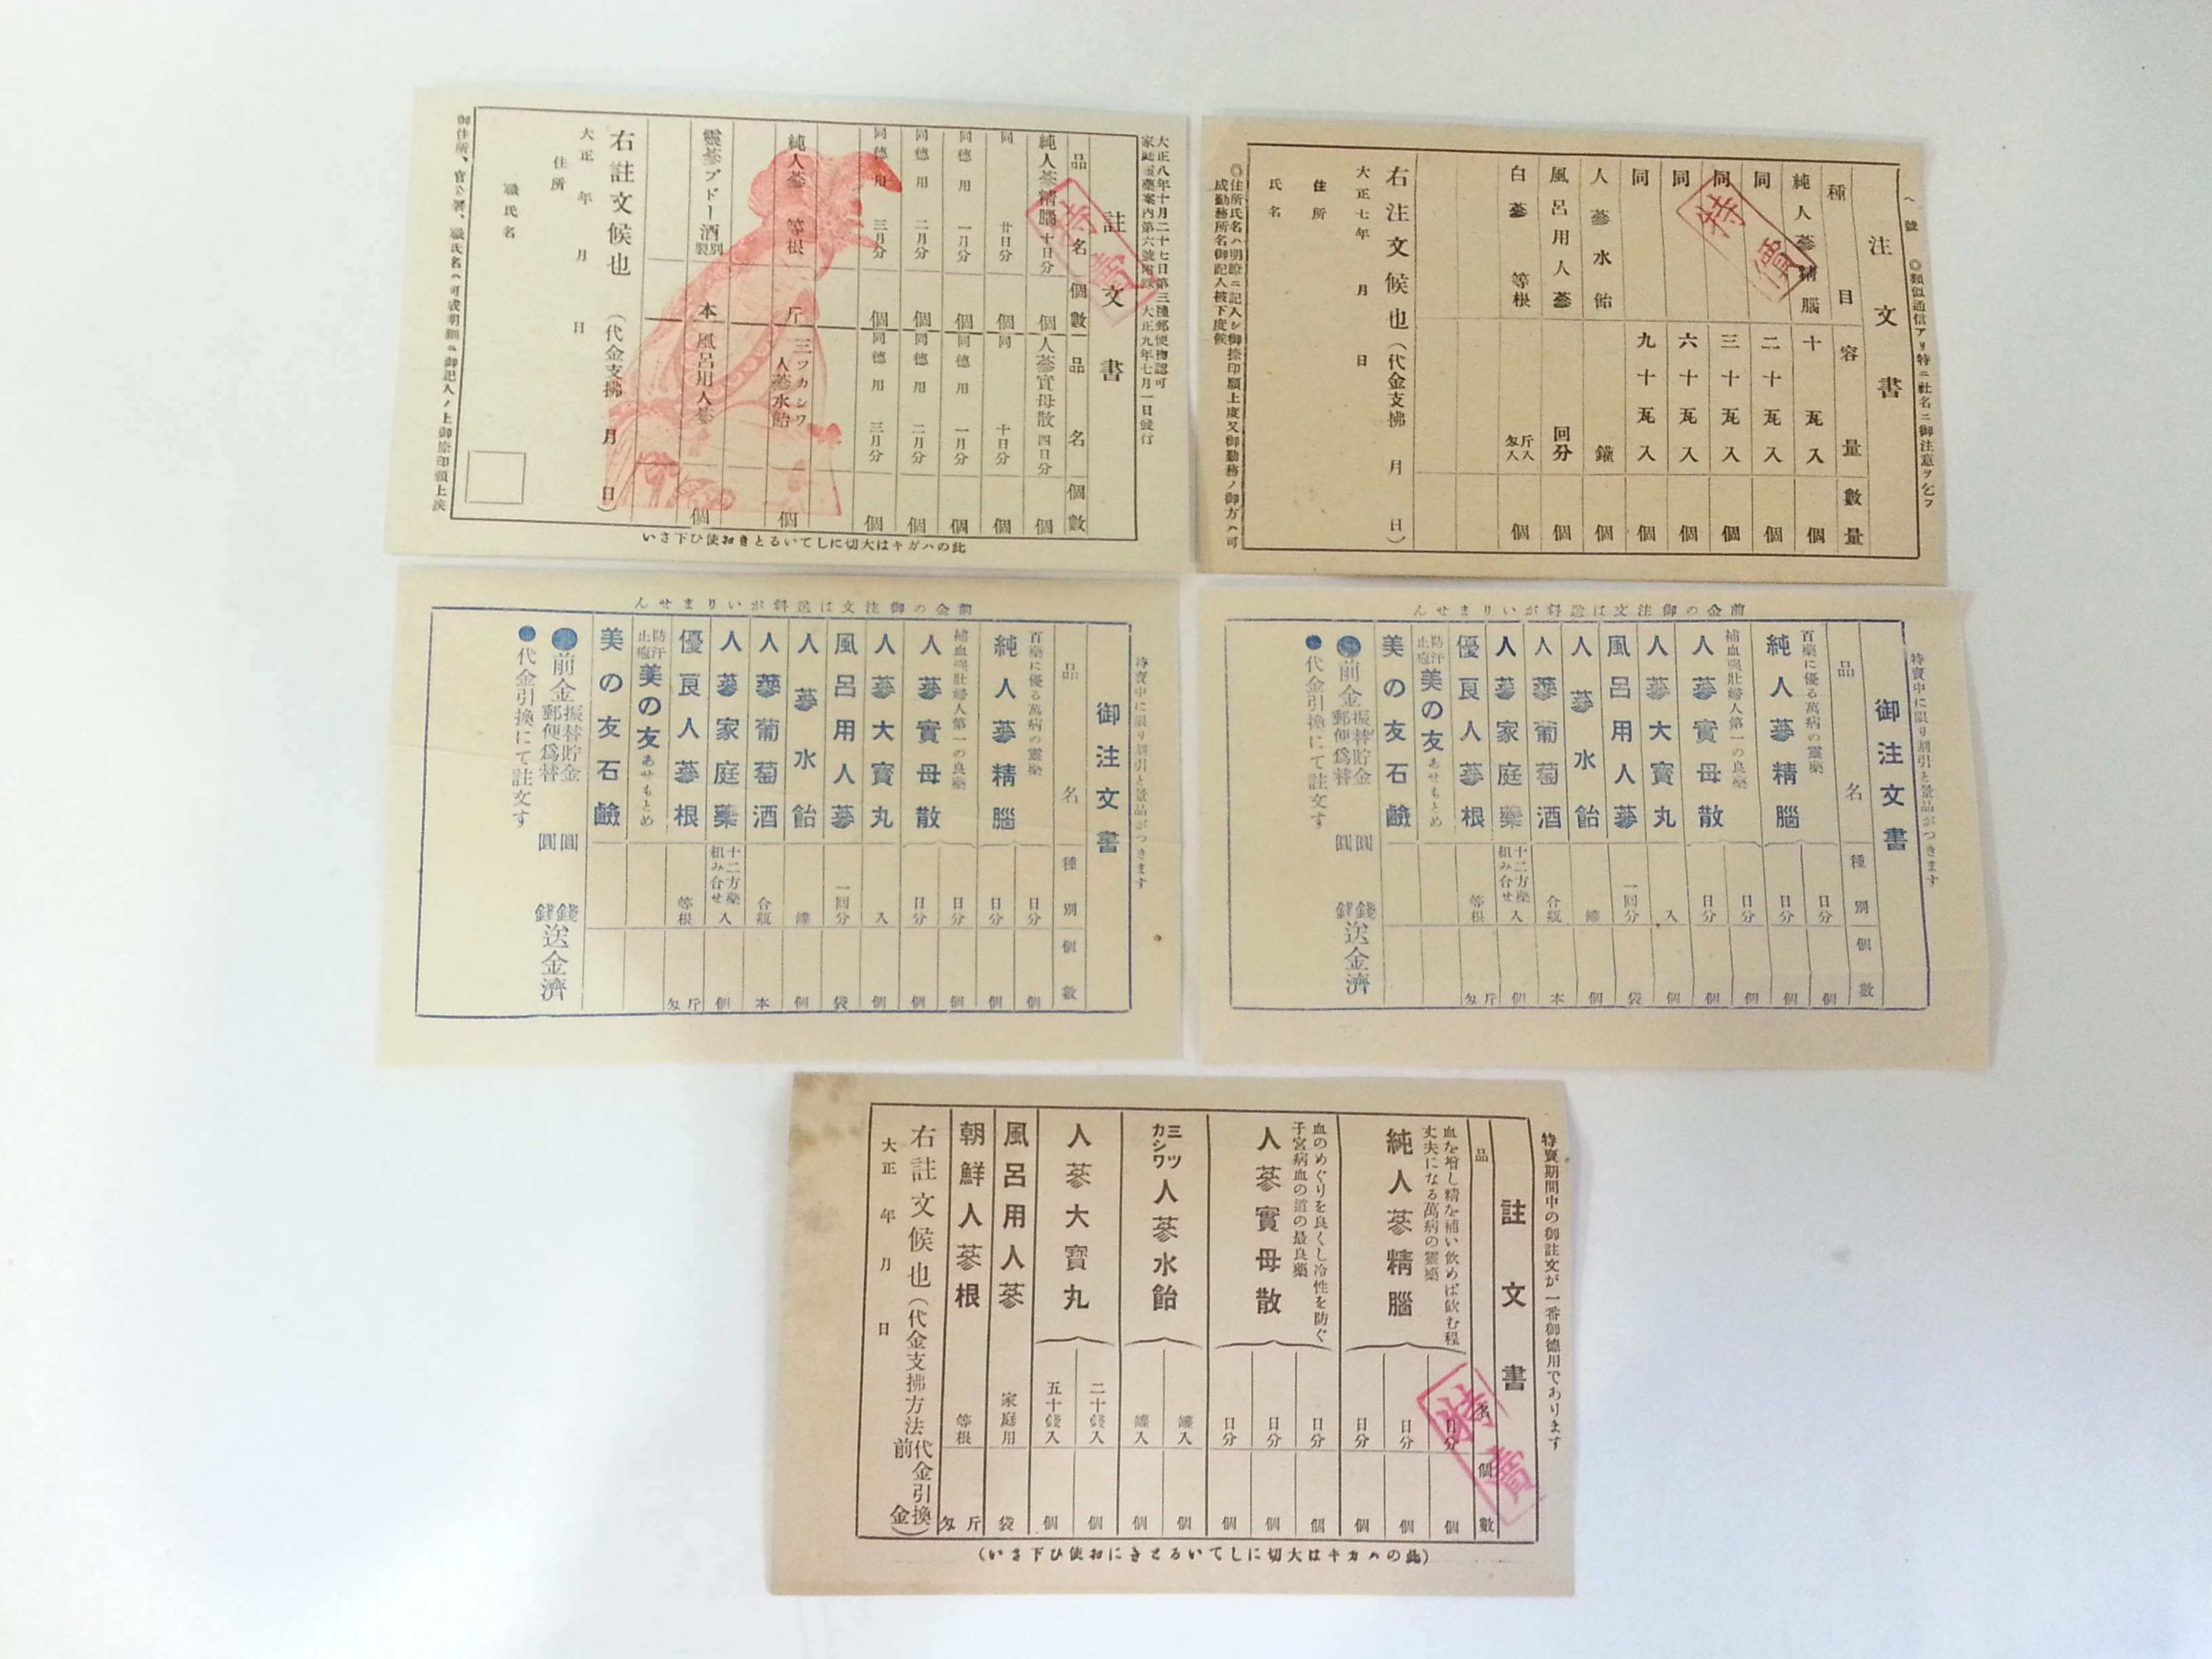 大正八年十月二十七日第三種郵便物認可
大正九年七月一日發行
註文書
品名
個數
品名
個數
純人蔘精腦 十日分
個
人蔘實母散 四日分
個
同 廿日分
個
同 十日分
個
同德用 一月分
個
同德用 一月分
個
同德用 二月分
個
同德用 二月分
個
同德用 三月分
個
同德用 三月分
個
純人蔘 等根
斤
三ツカシワ
人蔘水飴
個
靈蔘ブドー酒
別製
本
風呂用人蔘
個
右註文候也(代金支拂 月 日)
大正 年 月 日
住所
職氏名
此のハガキは大切にしているときお使ひ下さい
特賣
◎類似通信アリ特ニ社名ニ御注意ヲ乞フ
注文書
種目
容量
數量
純人蔘精腦
十瓦入
個
同
二十瓦入
個
同
三十瓦入
個
同
六十瓦入
個
同
九十瓦入
個
人蔘水飴
罐
個
風呂用人蔘
回分
個
白蔘 等根
斤入
匁入
個
右注文候也(代金支拂 月 日)
大正七年 月 日
住所
氏名
◎住所氏名ハ明瞭ニ記入シ御捺印願上度又御勤務ノ御方ハ可
成勤務所名御記入被下度候
特賣
前金の御注文は送料がいりません
特賣中に限り割引と景品がつきます
御注文書
品名
種別
個數
百藥に優る萬病の靈藥
純人蔘精腦
日分
個
日分
個
補血强壯婦人第一の良藥
人蔘實母散
日分
個
日分
個
人蔘大寶丸
入
個
風呂用人蔘
一回分
袋
人蔘水飴
罐
個
人蔘葡萄酒
合瓶
本
人蔘家庭藥
十二方藥
組み合せ
入
個
優良人蔘根
等根
斤
匁
防汗
止疱
美の友
あせもとめ
美の友石鹼
●前金
振替貯金
郵便爲替
圓 錢
圓 錢
送金濟
●代金引換にて註文す
前金の御注文は送料がいりません
特賣中に限り割引と景品がつきます
御注文書
品名
種別
個數
百藥に優る萬病の靈藥
純人蔘精腦
日分
個
日分
個
補血强壯婦人第一の良藥
人蔘實母散
日分
個
日分
個
人蔘大寶丸
入
個
風呂用人蔘
一回分
袋
人蔘水飴
罐
個
人蔘葡萄酒
合瓶
本
人蔘家庭藥
十二方藥
組み合せ
入
個
優良人蔘根
等根
斤
匁
防汗
止疱
美の友
あせもとめ
美の友石鹼
●前金
振替貯金
郵便爲替
圓 錢
圓 錢
送金濟
●代金引換にて註文す
特賣期間中の御註文が一番御德用であります
註文書
品名
個數
血を增し精を補い飮めば飮む程
丈夫になる萬病の靈藥
純人蔘精腦
日分
個
日分
個
日分
個
血のめぐりを良くし冷性を防ぐ
子宮病血の道の最良藥
人蔘實母散
日分
個
日分
個
日分
個
三ツ
カシワ
人蔘水飴
罐入
個
罐入
個
人蔘大寶丸
二十錢入
個
五十錢入
個
風呂用人蔘
家庭用
袋
朝鮮人蔘根
等根
斤
匁
右註文候也(代金支拂方法 代金引換
前金)
大正 年 月 日
(此のハカキは大切にしているときにお使ひ下さい)
特賣